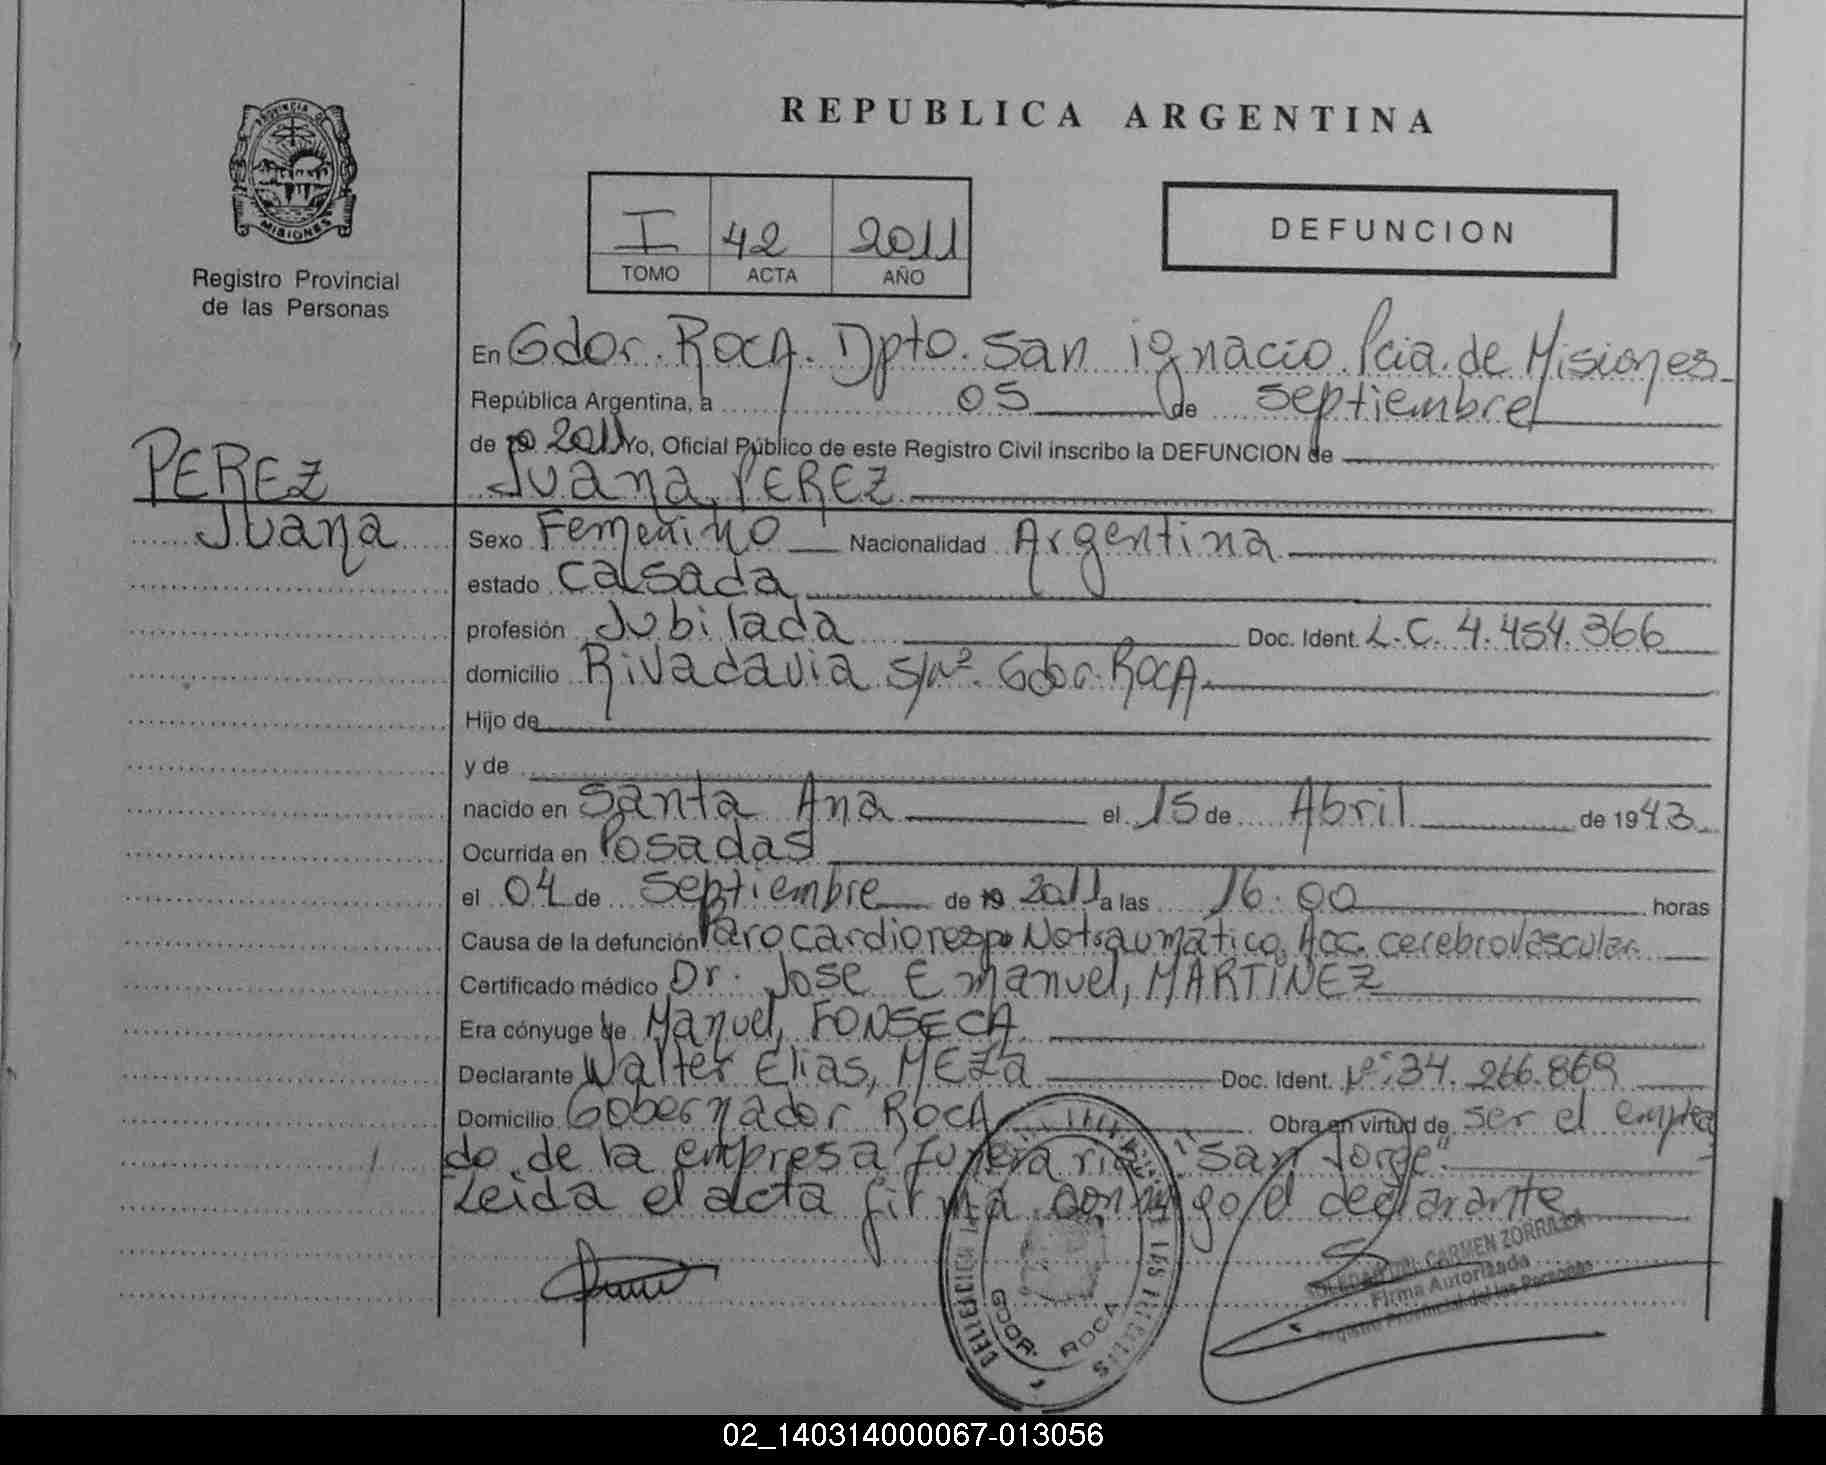 REPUBLICA ARGENTINA
PROVINCIA DE
MISIONES
Registro Provincial
de las Personas
I 42 2011
TOMO ACTA AÑO
DEFUNCION
En Gdor. Roca. Dpto. San ignacio Pcia. de Misiones
República Argentina, a 05 de septiembre
de 2011 Yo, Oficial Público de este Registro Civil inscribo la DEFUNCION de
PEREZ
Juana, PEREZ
Juana
Sexo Femenino Nacionalidad Argentina
estado Calsada
profesión Jubilada Doc. Ident. L.C. 4.454.366
domicilio Rivadavia s/nº. Gdor. Roca
Hijo de
y de
nacido en Santa Ana el 15 de Abril de 1943
Ocurrida en Posadas
el 04 de septiembre de 19 2011 a las 16.00 horas
Causa de la defunción Parocardioresp. Notraumatico, Acc. cerebrovascular
Certificado médico Dr. Jose Emanuel, MARTINEZ
Era cónyuge de Manuel, FONSECA
Declarante Walter Elias, MEZa Doc. Ident. Nº: 34.266.869
Domicilio Gobernador Roca Obra en virtud de ser el emplea
do de la empresa funeraria "San Jorge"
Leida el acta firma conmigo el declarante
GDOR. ROCA
SOLEDAD DEL CARMEN ZORRILLA
Firma Autorizada
Registro Provincial de las Personas
02_140314000067-013056